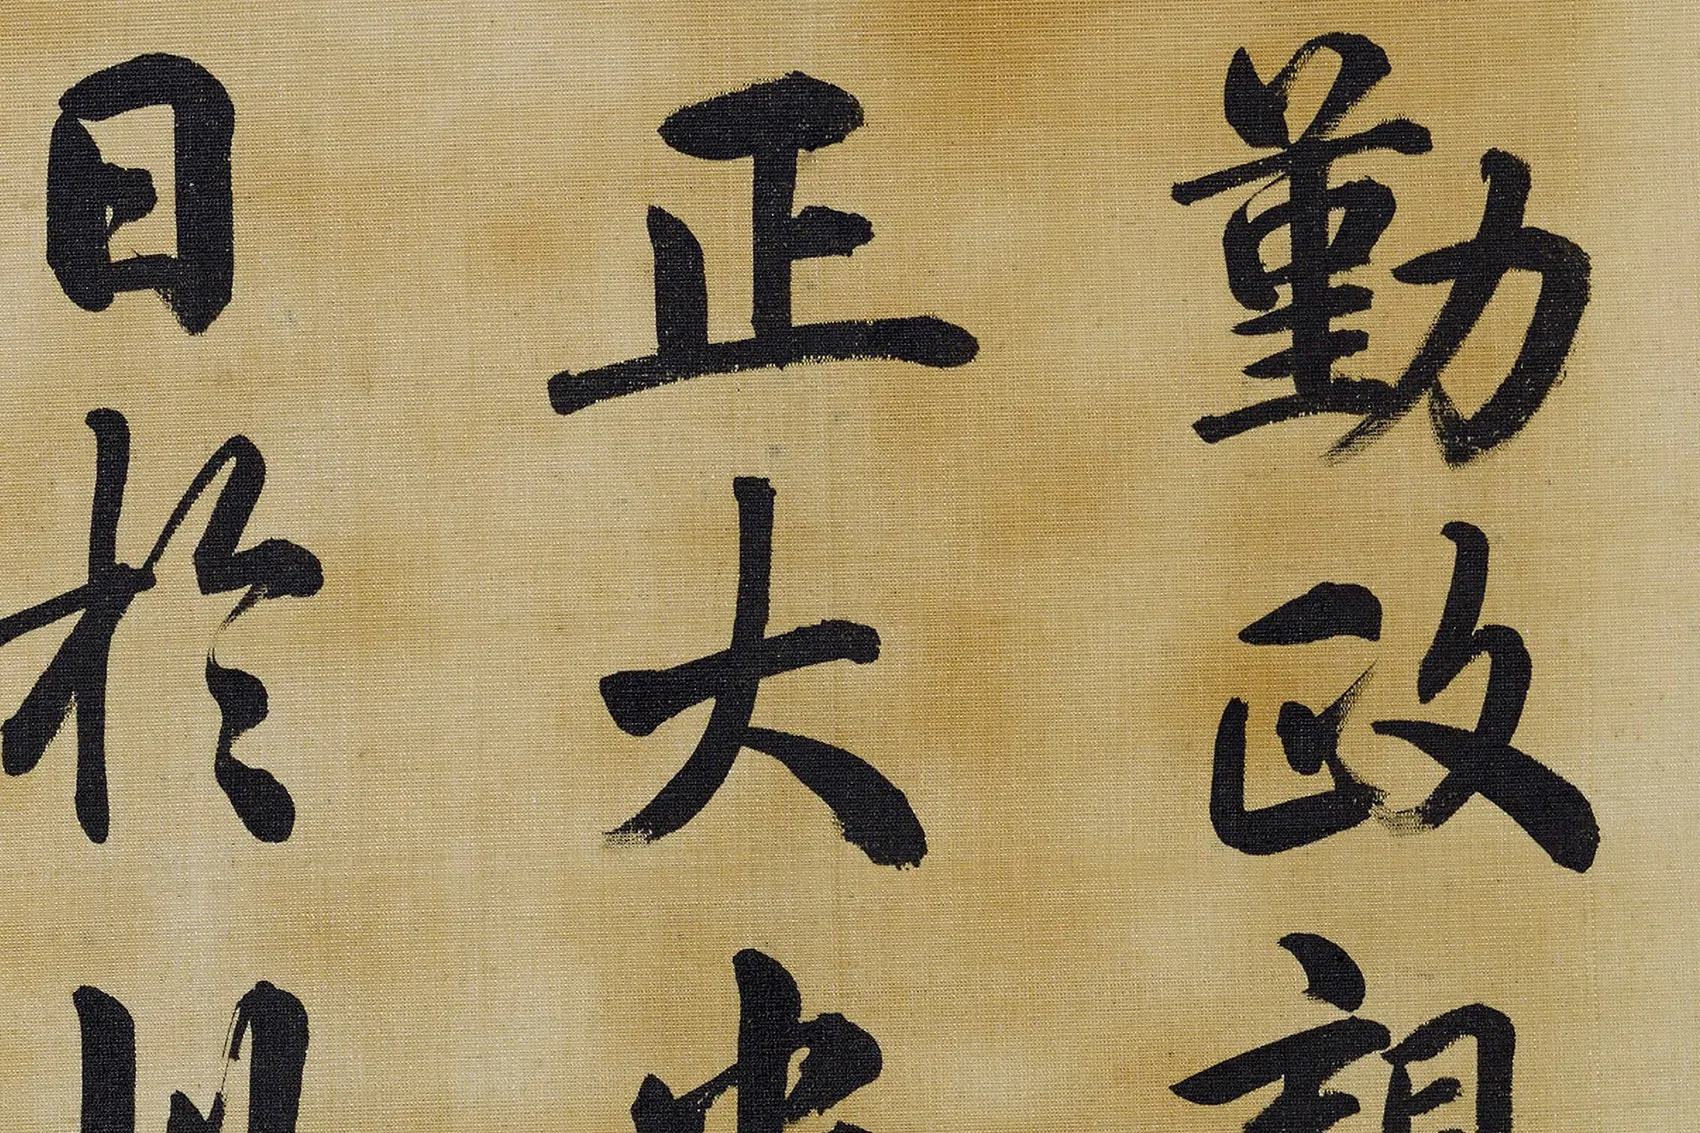 勤政親
正大
日於